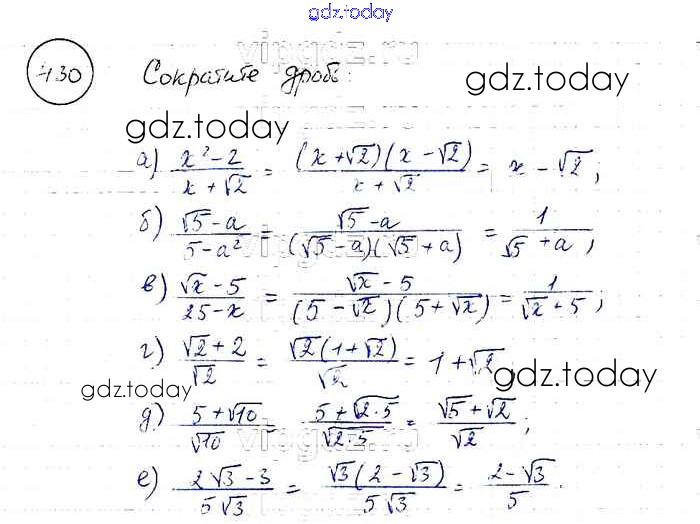 gdz.today
vipgdz.ru
430 Сократите дробь:
gdz.today
gdz.today
а) (x² - 2)/(x + √2) = ((x + √2)(x - √2))/(x + √2) = x - √2;
б) (√5 - a)/(5 - a²) = (√5 - a)/((√5 - a)(√5 + a)) = 1/(√5 + a);
vipgdz.ru
в) (√x - 5)/(25 - x) = (√x - 5)/((5 - √x)(5 + √x)) = 1/(√x + 5);
г) (√2 + 2)/√2 = (√2(1 + √2))/√2 = 1 + √2
gdz.today
gdz.today
д) (5 + √10)/√10 = (5 + √(2·5))/√(2·5) = (√5 + √2)/√2;
vipgdz.ru
е) (2√3 - 3)/(5√3) = (√3(2 - √3))/(5√3) = (2 - √3)/5.